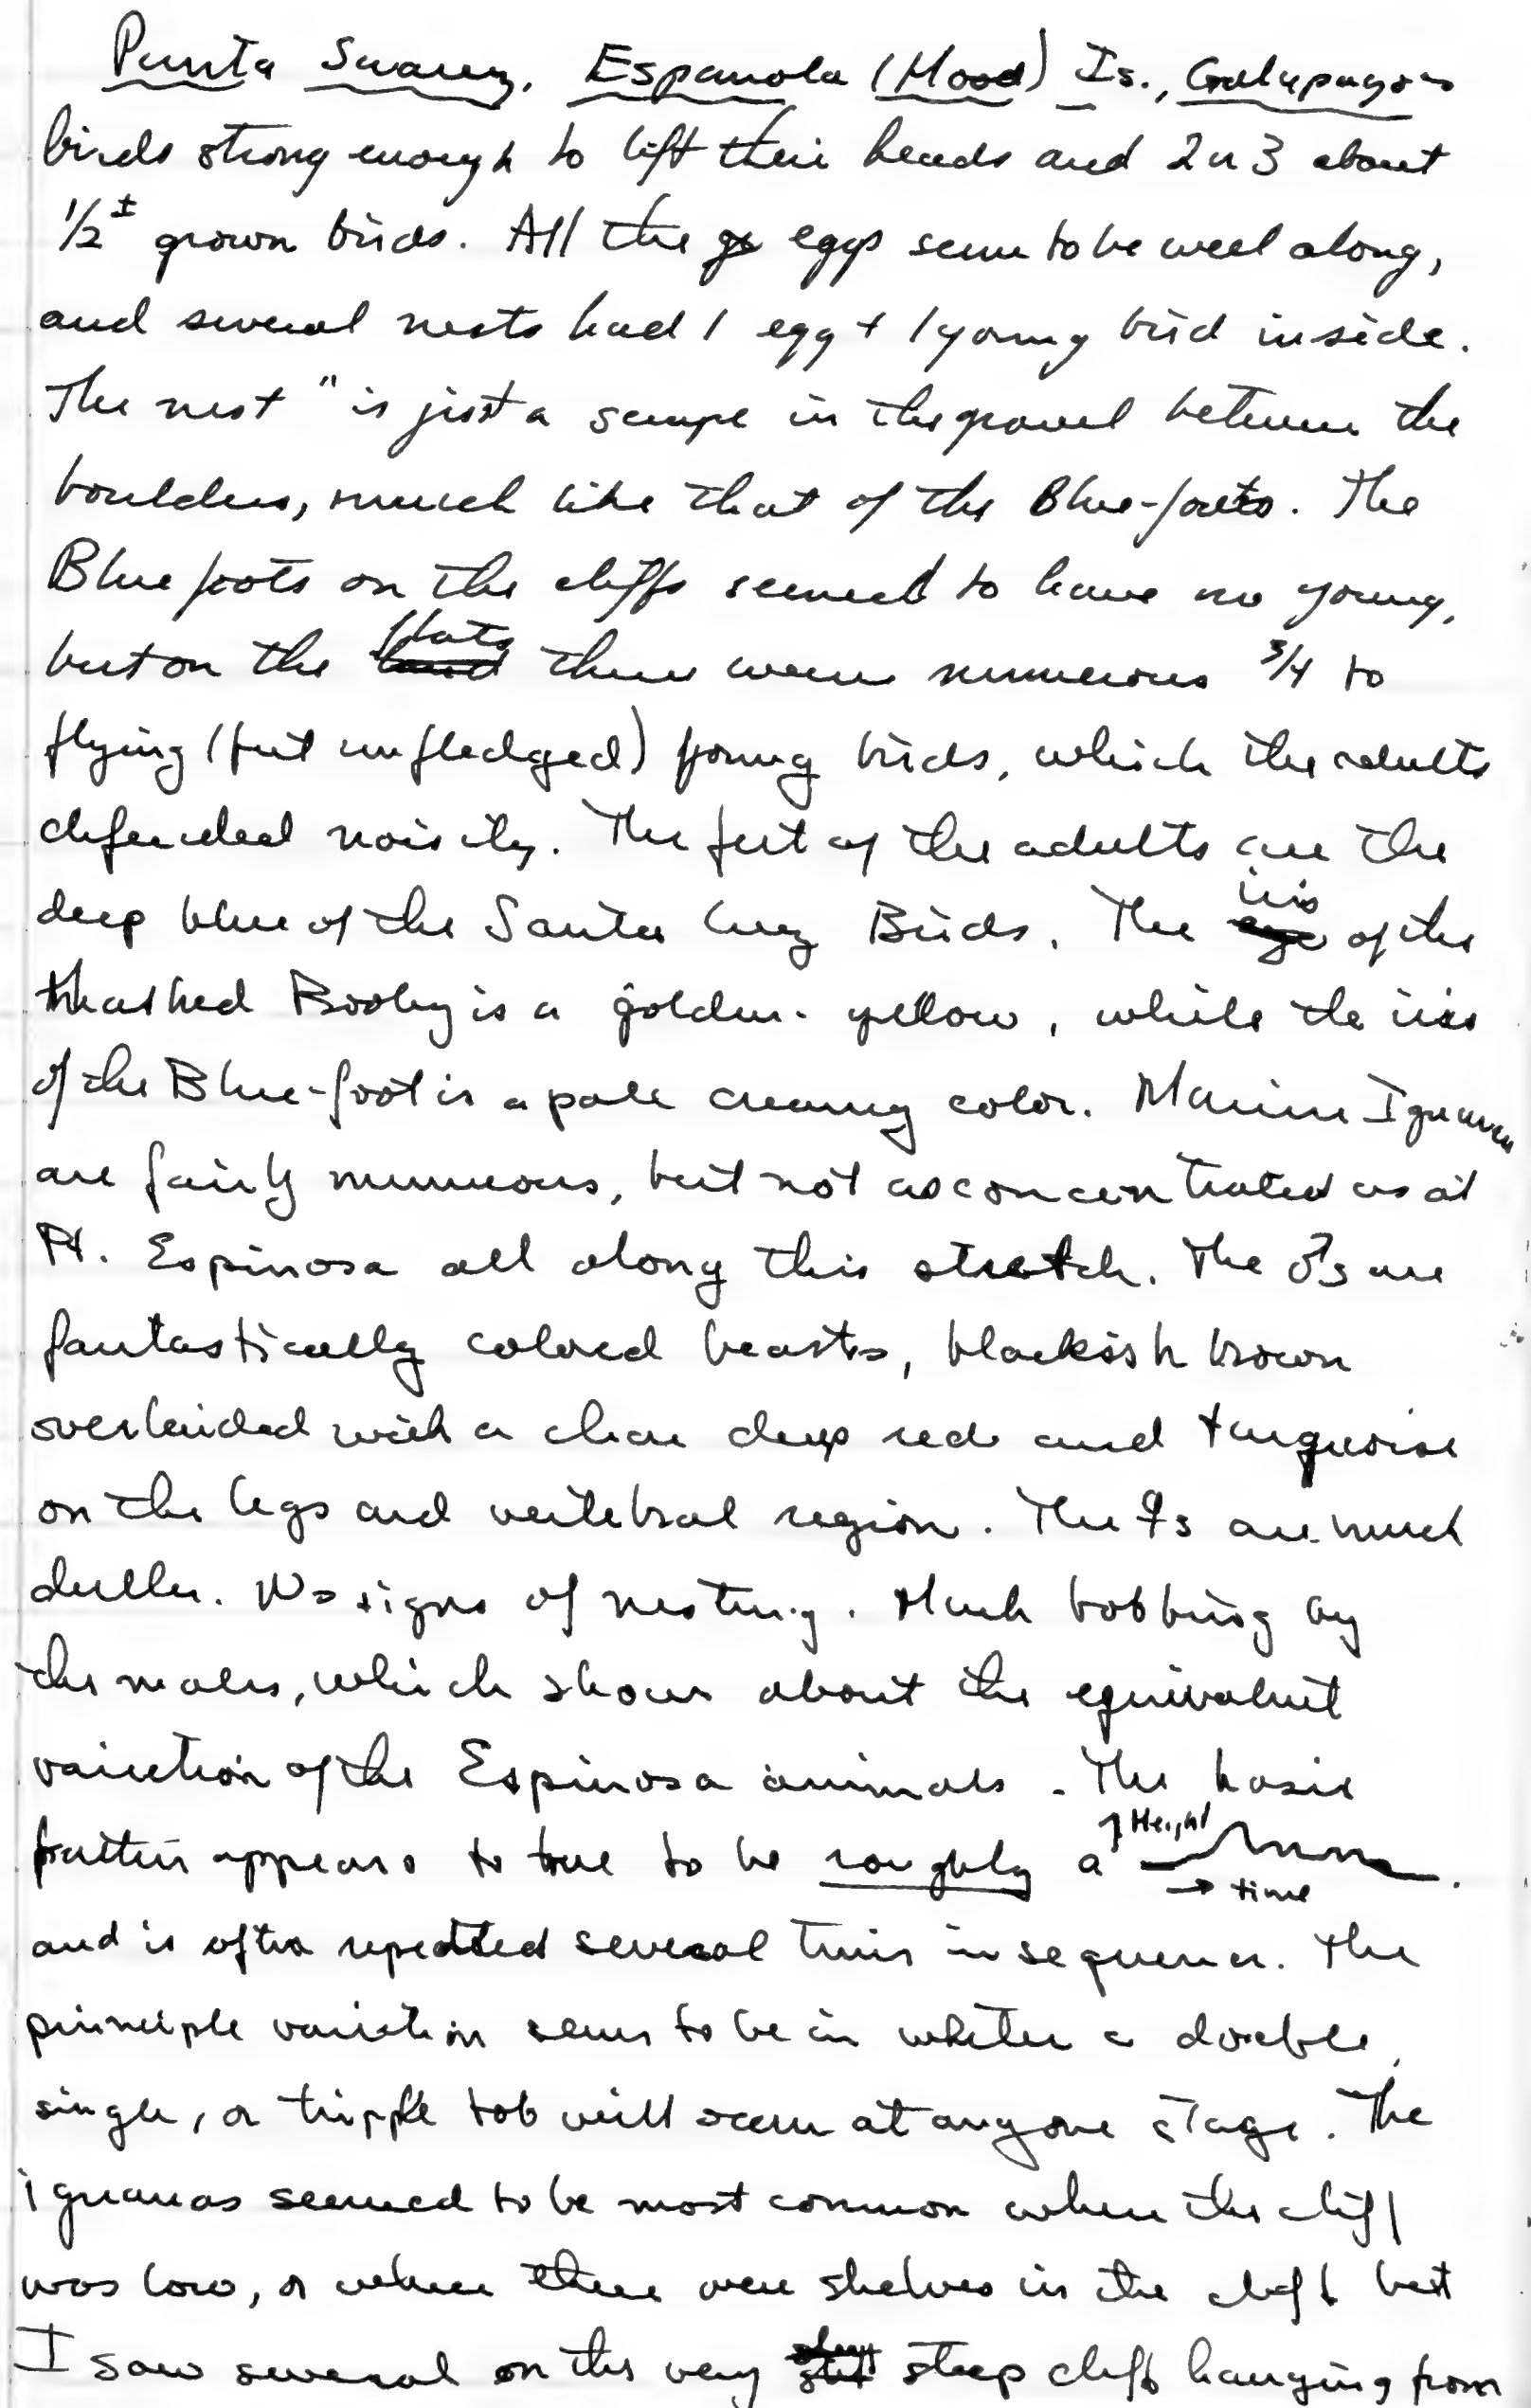 Punta Suarez, Espanola (Hood) Is., Galapagos
birds strong enough to lift their heads and 2 or 3 about
1/2± grown birds. All the eggs seem to be well along,
and several nests had 1 egg + 1 young bird inside.
The nest " is just a scrape in the gravel between the
boulders, much like that of the Blue-foots. The
Blue foots on the cliffs seemed to have no young,
but on the flats there were numerous 3/4 to
flying (but unfledged) young birds, which the adults
defended noisily. The feet of the adults are the
deep blue of the Santa Cruz Birds. The iris of the
Masked Booby is a golden-yellow, while the iris
of the Blue-foot is a pale creamy color. Marine Iguanas
are fairly numerous, but not as concentrated as at
Pt. Espinosa all along this stretch. The ♂s are
fantastically colored beasts, blackish brown
overlaided with a clear deep red and turquoise
on the legs and vertebral region. The ♀s are much
duller. No signs of nesting. Much bobbing by
the males, which show about the equivalent
variation of the Espinosa animals. The basic
pattern appears to true to be roughly a ↑ Height → time .
and is often repeated several times in sequence. The
principle variation seems to be in whether a double,
single, or tripple bob will occur at anyone stage. The
iguanas seemed to be most common where the cliff
was low, or where there were shelves in the cliff but
I saw several on the very steep cliffs hanging from